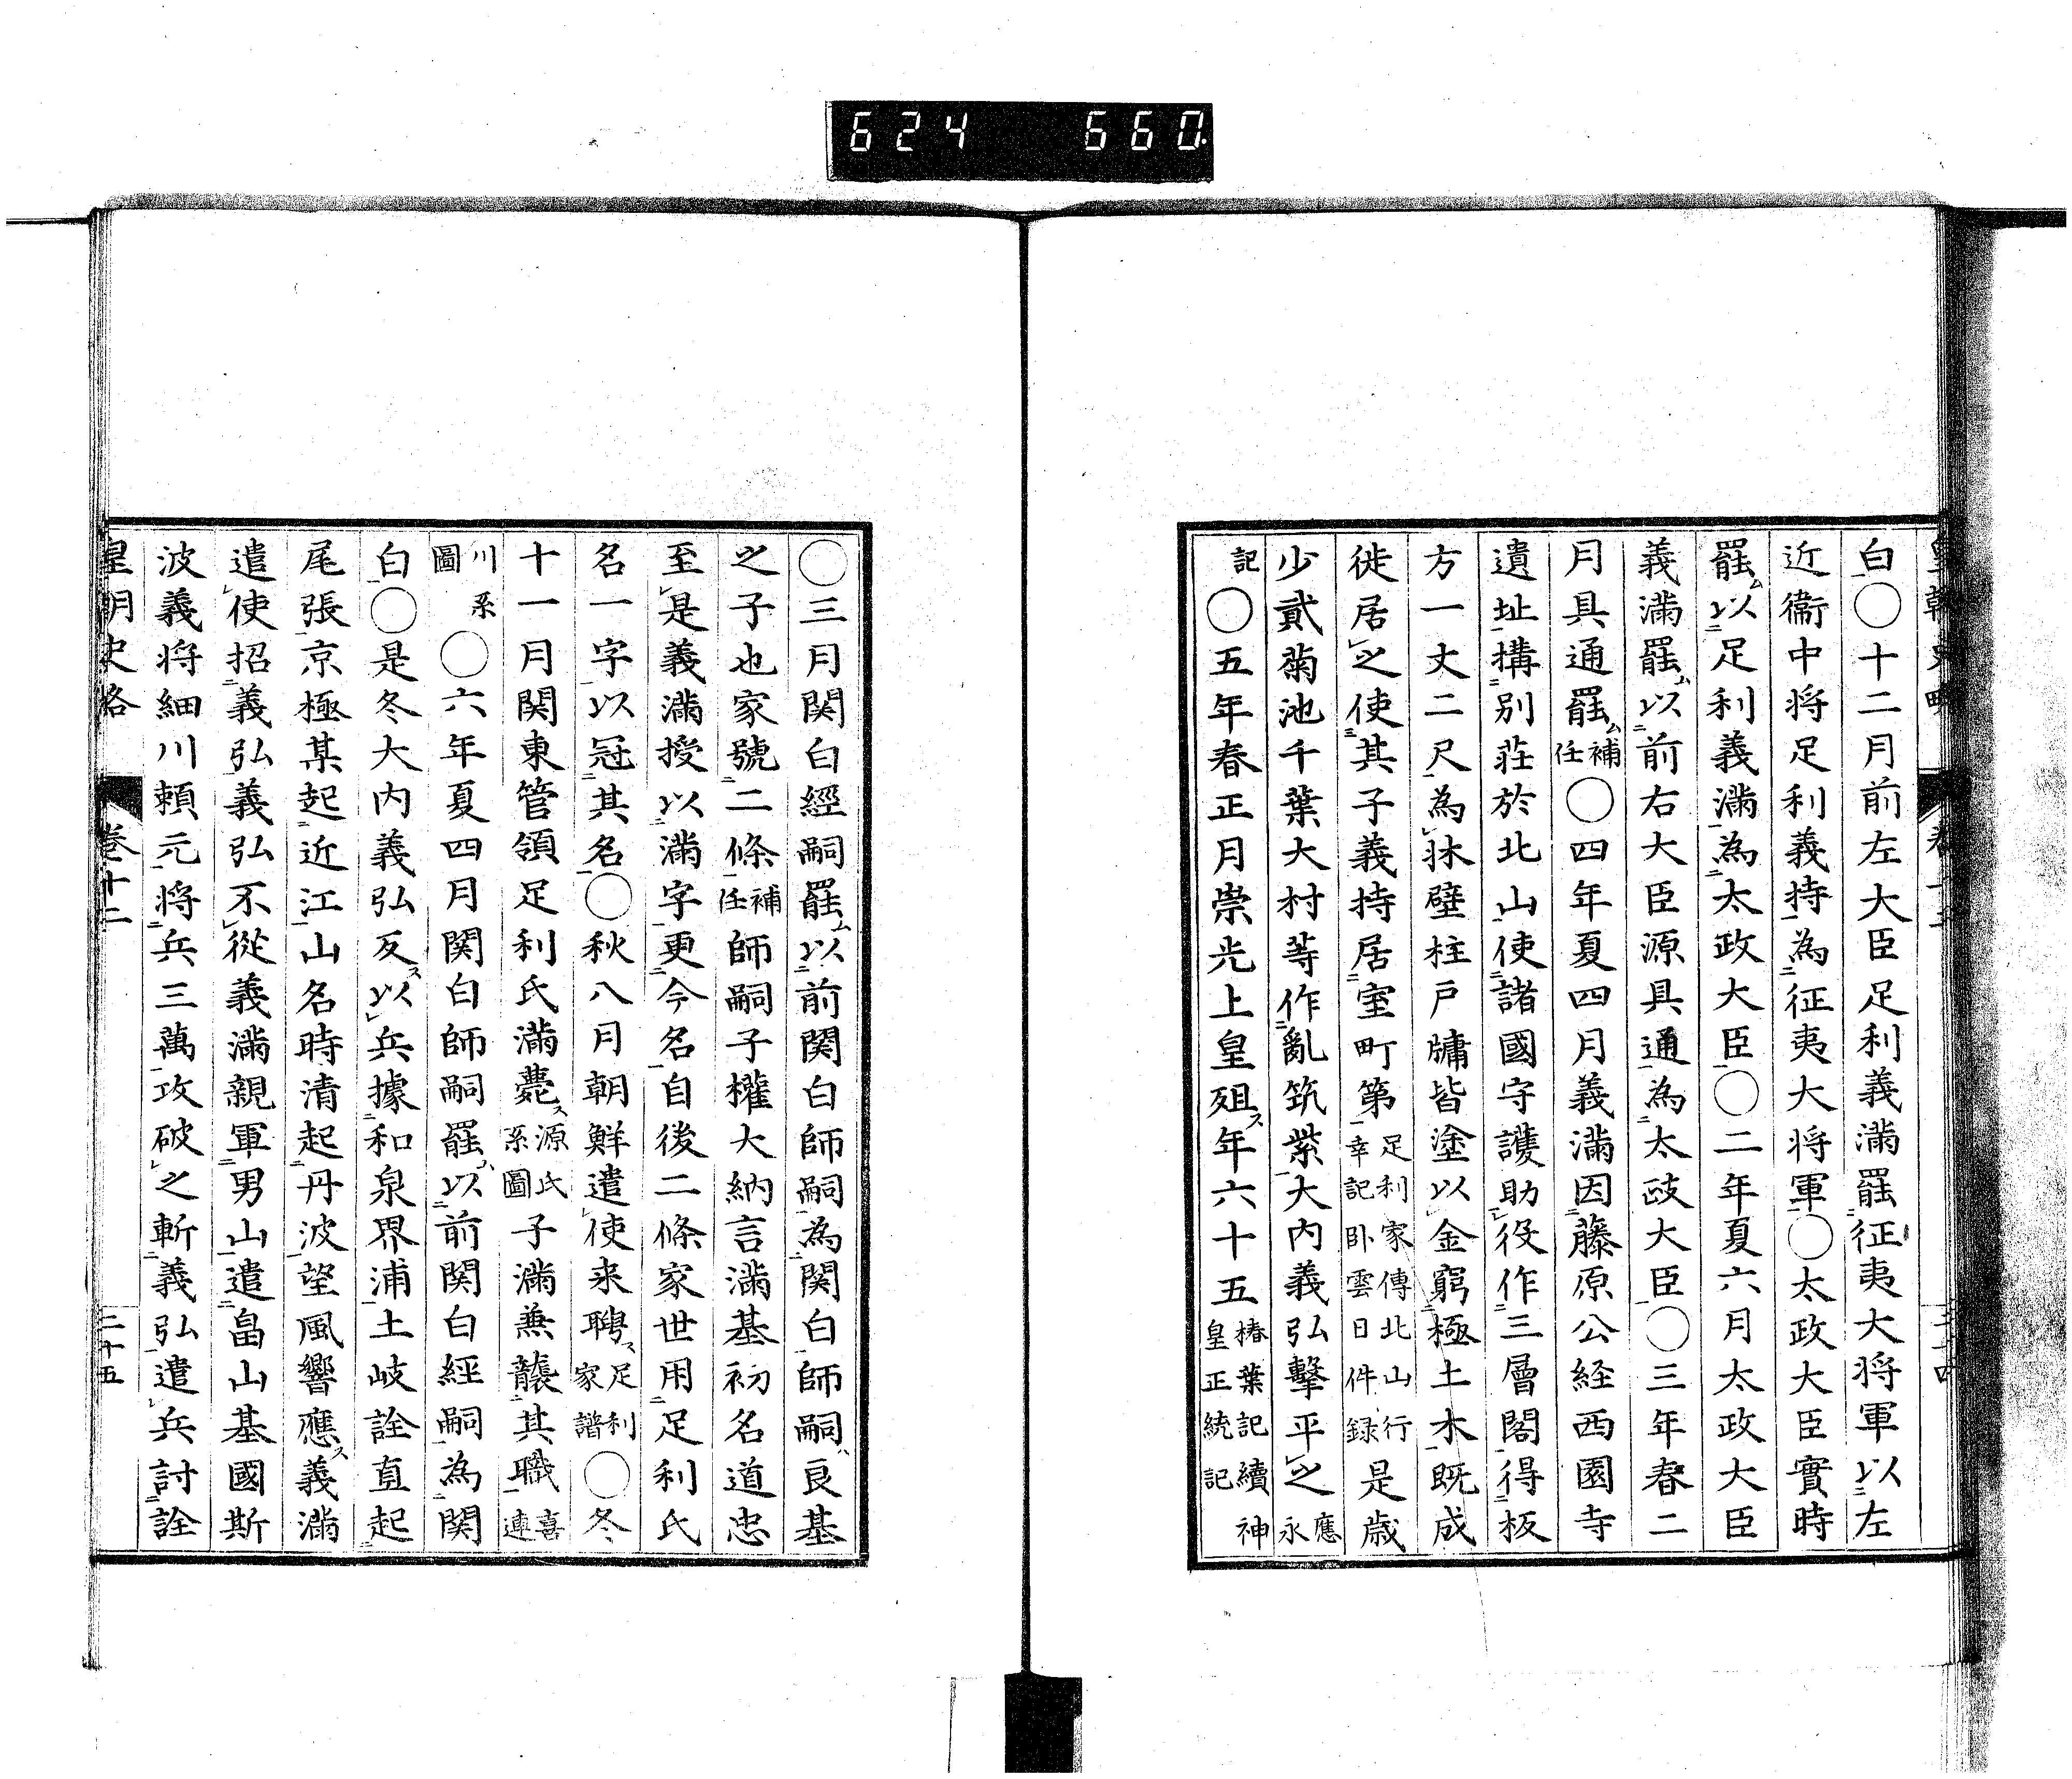 624 660
白〇十二月前左大臣足利義滿罷征夷大将軍以左
近衞中将足利義持為征夷大将軍〇太政大臣實時
罷以足利義滿為太政大臣〇二年夏六月太政大臣
義滿罷以前右大臣源具通為太政大臣〇三年春二
月具通罷補任〇四年夏四月義滿因藤原公経西園寺
遺址搆別莊於北山使諸國守護助役作三層閣得板
方一丈二尺為牀壁柱戸牗皆塗以金窮極土木既成
徙居之使其子義持居室町第足利家傳北山行幸記臥雲日件録是歳
少貳菊池千葉大村等作亂筑紫大内義弘擊平之應永
記〇五年春正月崇光上皇殂年六十五椿葉記續神皇正統記
〇三月関白經嗣罷以前関白師嗣為関白師嗣良基
之子也家號二條補任師嗣子權大納言滿基初名道忠
至是義滿授以滿字更今名自後二條家世用足利氏
名一字以冠其名〇秋八月朝鮮遣使来聘足利家譜〇冬
十一月関東管領足利氏滿薨源氏系圖子滿兼襲其職喜連
川系圖〇六年夏四月関白師嗣罷以前関白経嗣為関
白〇是冬大内義弘反以兵據和泉界浦土岐詮直起
尾張京極某起近江山名時清起丹波望風響應義滿
遣使招義弘義弘不從義滿親軍男山遣畠山基國斯
波義将細川頼元将兵三萬攻破之斬義弘遣兵討詮
皇朝史略 卷十二 二十五